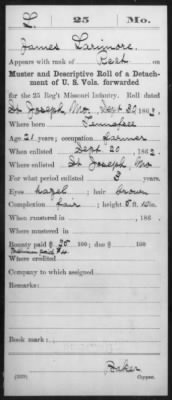 L. 25 Mo.
James Larimore,
Appears with rank of Rect. on
Muster and Descriptive Roll of a Detachment of U. S. Vols. forwarded
for the 25 Reg't Missouri Infantry. Roll dated
St. Joseph, Mo. Sept 22, 1862.
Where born Tennessee
Age 21 years; occupation Farmer
When enlisted Sept 20, 1862.
Where enlisted St. Joseph, Mo
For what period enlisted 3 years.
Eyes hazel; hair brown
Complexion fair; height 5 ft. in.
When mustered in , 186 .
Where mustered in
Bounty paid $ 25 100; due $ 100
Premium paid $4
Where credited
Company to which assigned
Remarks:
Book mark:
Baker
(339) Copyist.